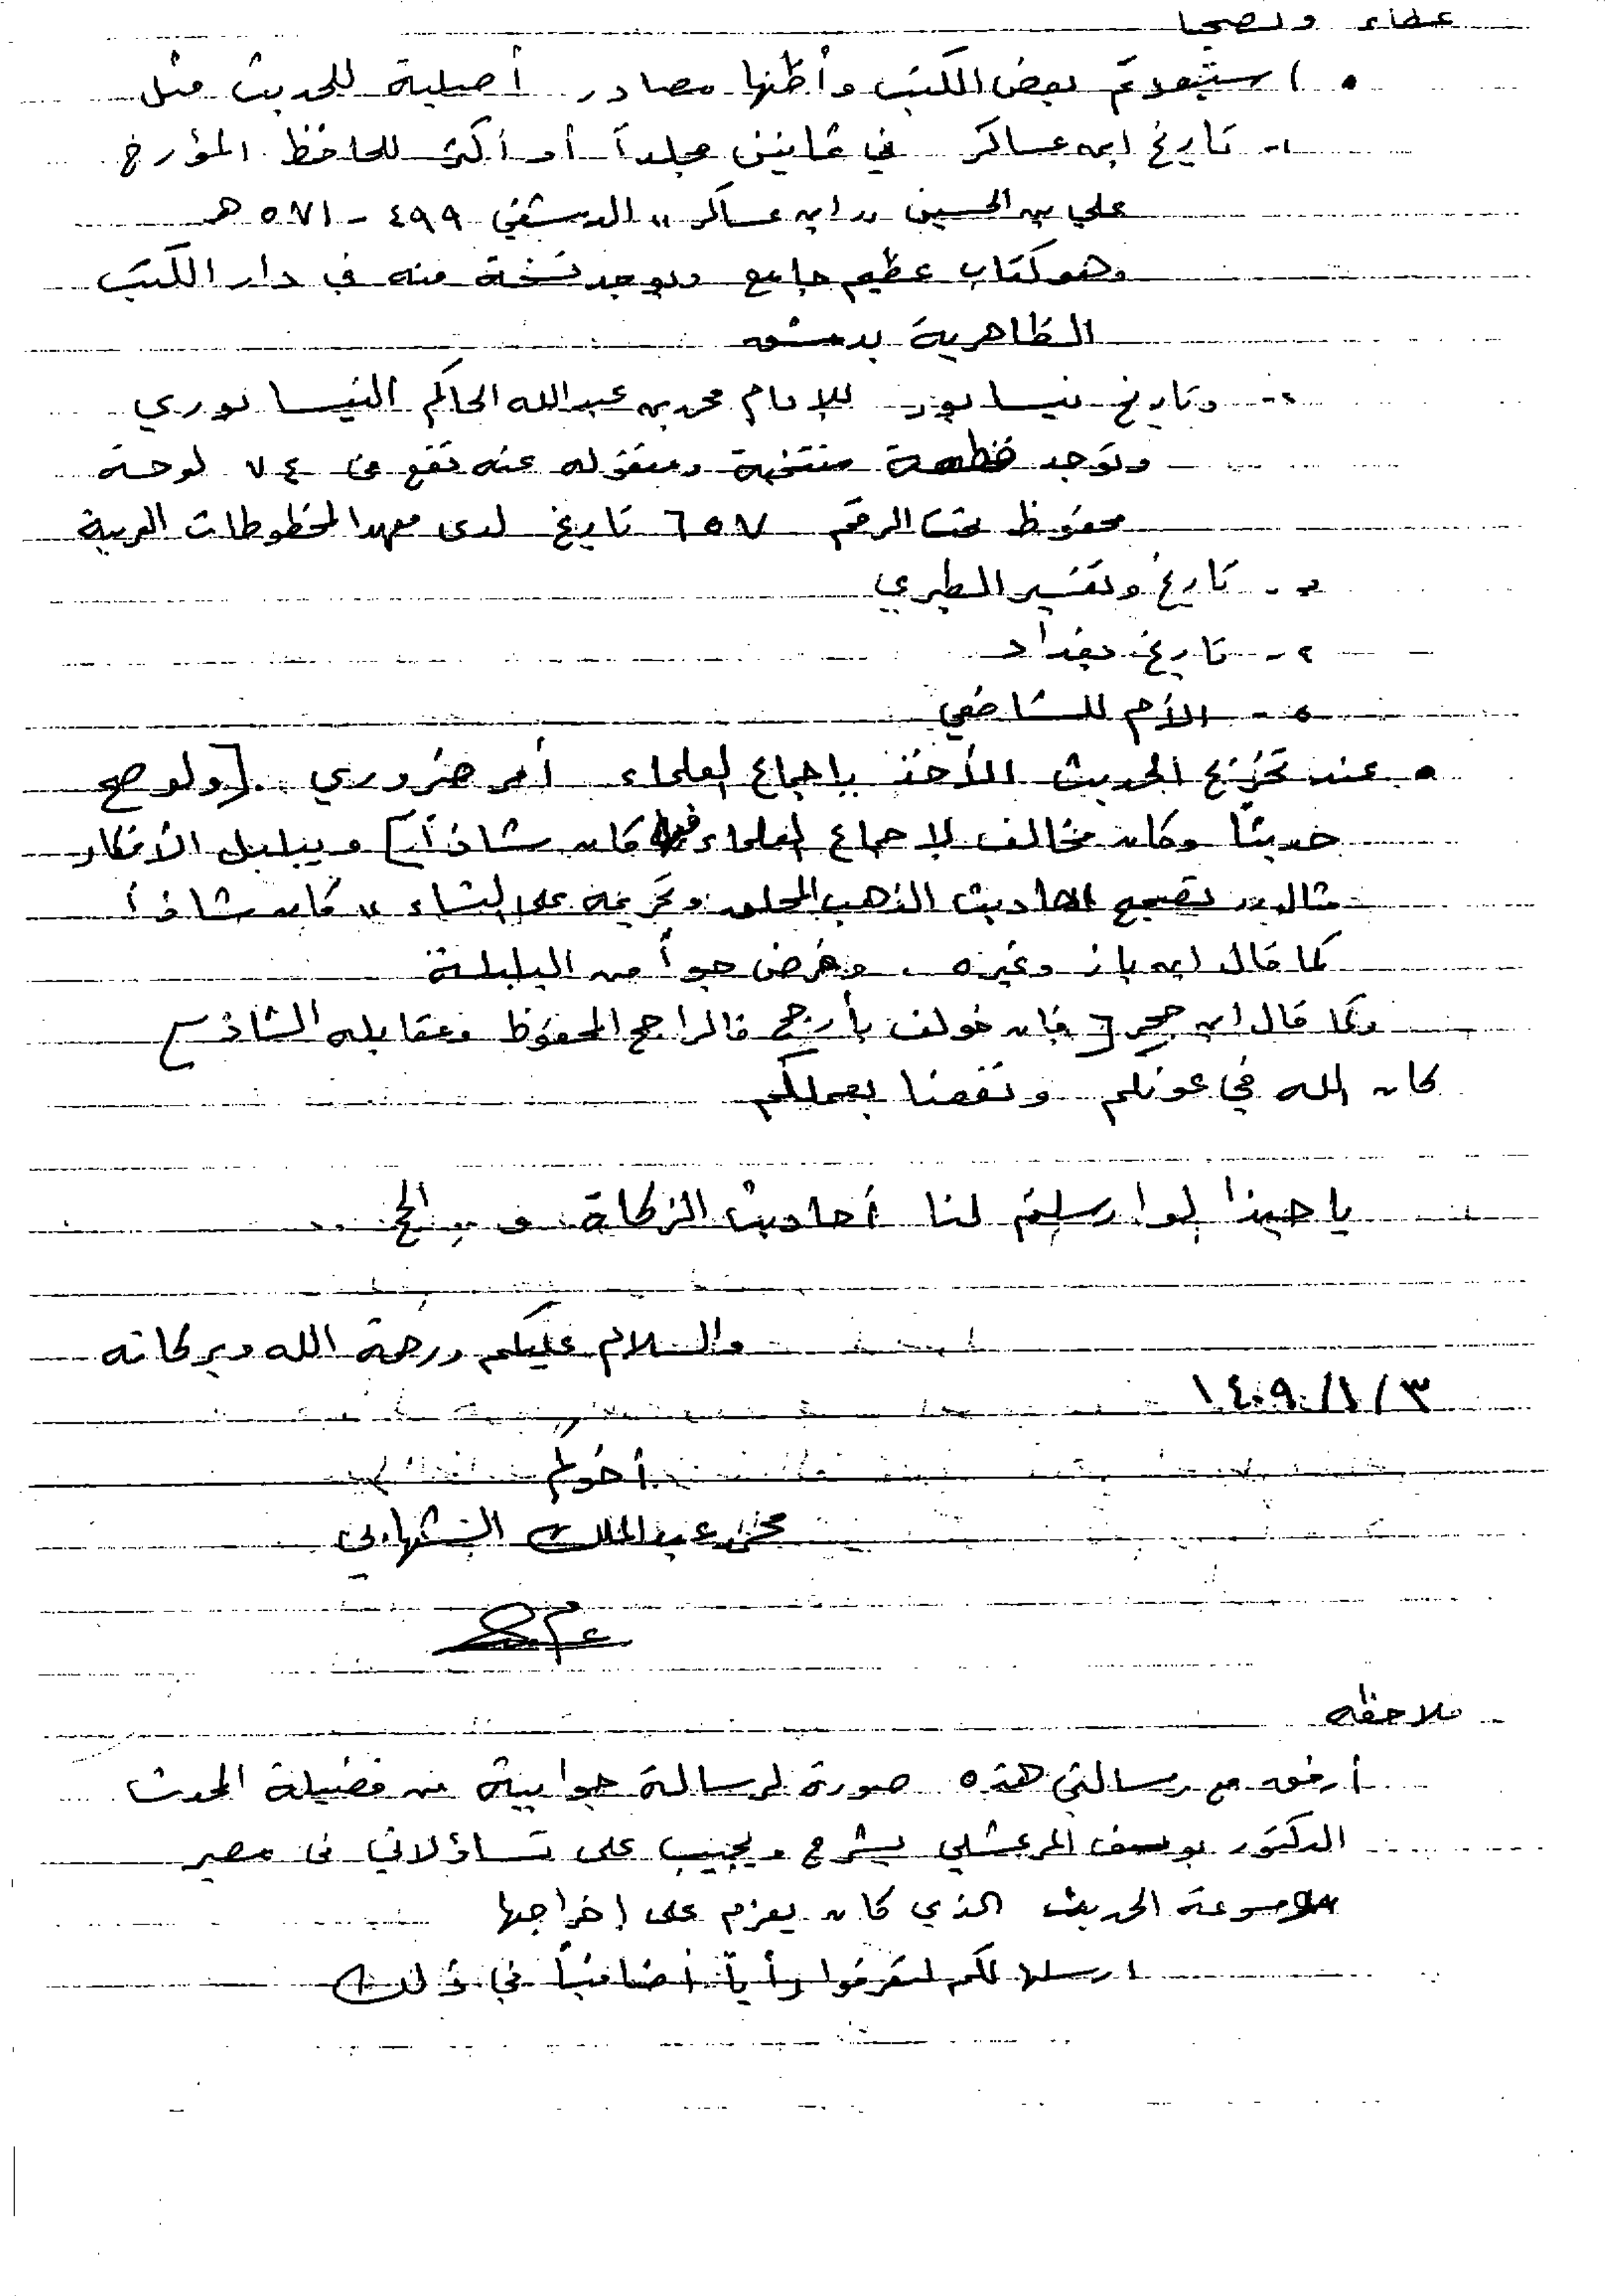 عطاء ونصحا
• استبعدتم بعض الكتب وأظنها مصادر أصلية للحديث مثل
١- تاريخ ابن عساكر في ثمانين مجلداً أو أكثر للحافظ المؤرخ
علي بن الحسين "ابن عساكر" الدمشقي ٤٩٩ - ٥٧١ هـ
وهو كتاب عظيم جامع ويوجد نسخة منه في دار الكتب
الظاهرية بدمشق
٢- وتاريخ نيسابور للإمام محمد بن عبدالله الحاكم النيسابوري
وتوجد قطعة منتخبة ومنقوله عنه تقع في ٧٤ لوحة
محفوظ تحت الرقم ٦٥٧ تاريخ لدى معهد المخطوطات العربية
٣- تاريخ وتفسير الطبري
٤- تاريخ بغداد
٥- الأم للشافعي
• عند تخريج الحديث الأخذ بإجماع العلماء أمر ضروري [ولو صح
حديثاً وكان مخالف لإجماع العلماء كان شاذاً] ويبلبل الأفكار
مثال "تصحيح احاديث الذهب المحلق وتحريمه على النساء" كان شاذاً
كما قال ابن باز وغيره. وفرض جواً من البلبلة
وكما قال ابن حجر [فإن خولف بأرجح فالراجح المحفوظ ومقابله الشاذ]
كان الله في عونكم ونفعنا بعملكم
يا حبذا لو ارسلتم لنا أحاديث الزكاة و الحج
والسلام عليكم ورحمة الله وبركاته
٣/١/١٤٠٩
أخوكم
عبدالملك الشهابي
ملاحظه
أرفق مع رسالتي هذه صورة لرسالة جوابية من فضيلة المحدث
الدكتور يوسف المرعشلي يشرح ويجيب على تساؤلاتي في مصير
موسوعة الحديث الذي كان يعزم على إخراجها
ارسلها لكم لتعرفوا رأياً اضافياً في ذلك